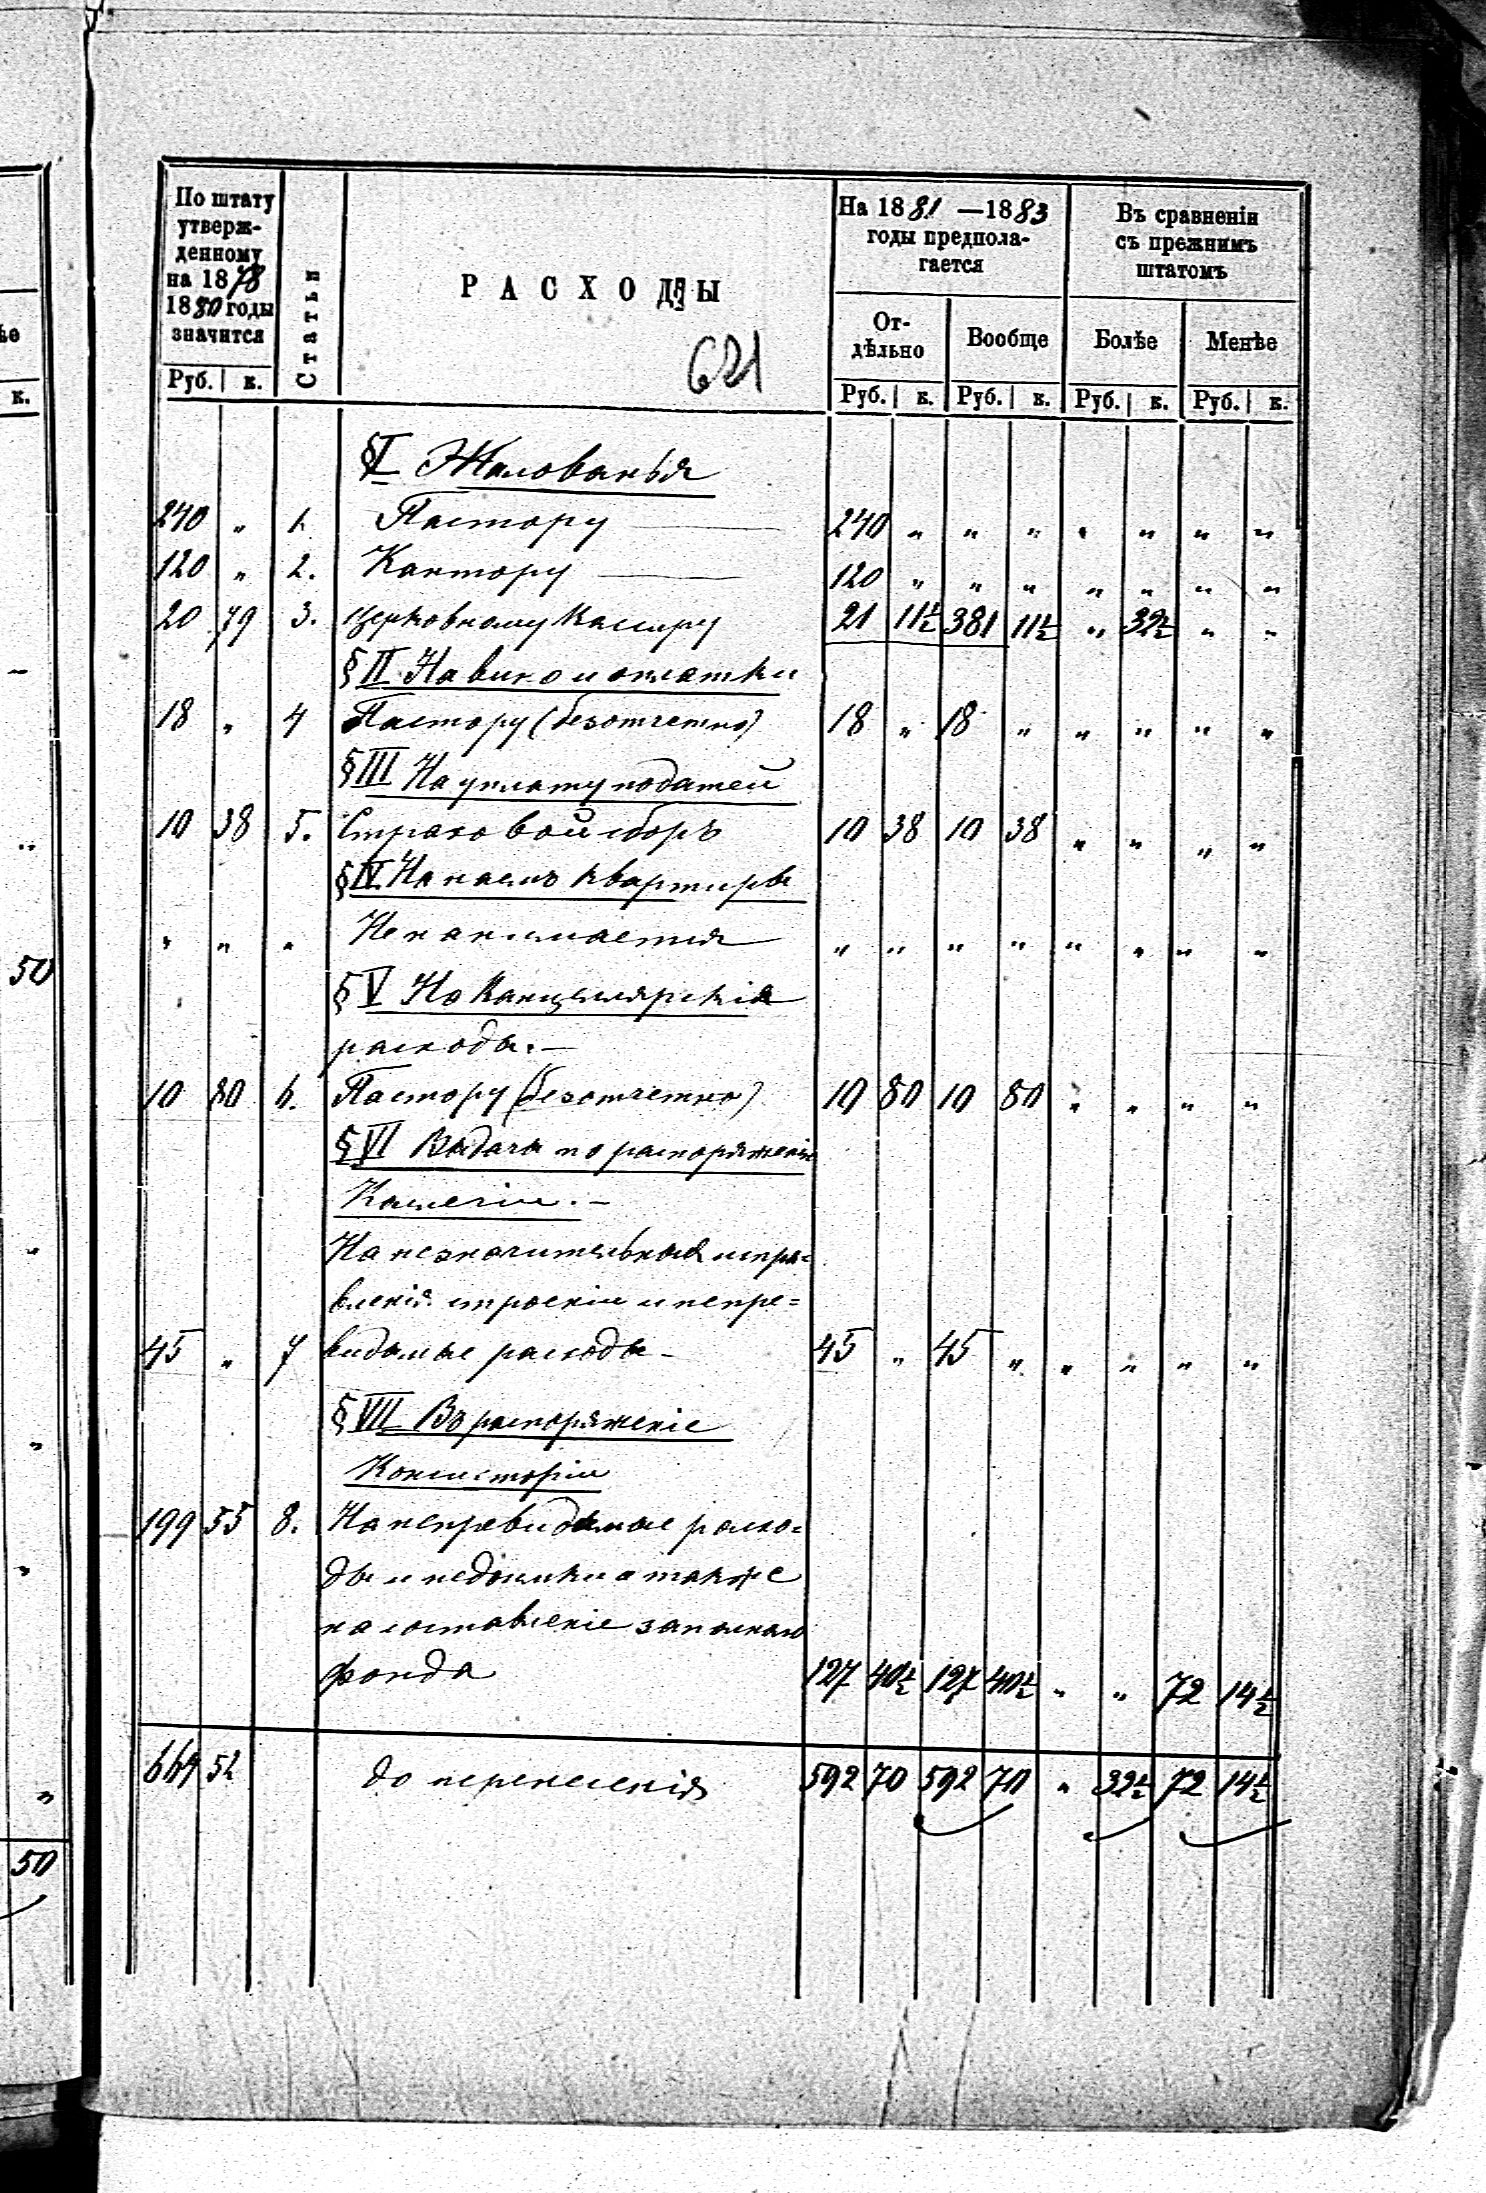 По штату утверж-денному на 1878 1880 годы значится
Статьи
РАСХОДЫ
621
На 1881 —1883 годы предпола-гается
Въ сравненіи съ прежнимъ штатомъ
От-дѣльно
Вообще
Болѣе
Менѣе
Руб. к.
Руб. к. Руб. к. Руб. к. Руб. к.
к.
§ I Жалованья
240 " 1. Пастору — 240 " " " " " " "
120 " 2. Кантору — 120 " " " " " " "
20 79 3. Церковному Кассиру 21 11½ 381 11½ " 32½ " "
§ II На вино и оплатки
18 " 4 Пастору (безотчетно) 18 " 18 " " " " "
§ III На уплату податей
10 38 5. Страховой сборъ 10 38 10 38 " " " "
§ IV На наемъ квартиры
" " " Не нанимается " " " " " " " "
50
§ V На Канцелярскія
расходы. —
10 80 6. Пастору (безотчетно) 10 80 10 80 " " " "
§ VI Выдачи по распоряженію
Коллегіи. —
На незначительныя испра=
вленія строеніи и непре=
45 " 7 видимые расходы — 45 " 45 " " " " "
§ VII Въ распоряженіе
Консисторіи
199 55 8. На непревидимые расхо=
ды и недоимки а также
на составленіе запаснаго
фонда 127 40½ 127 40½ " " 72 14½
664 52 до перенесенія 592 70 592 70 " 32½ 72 14½
50